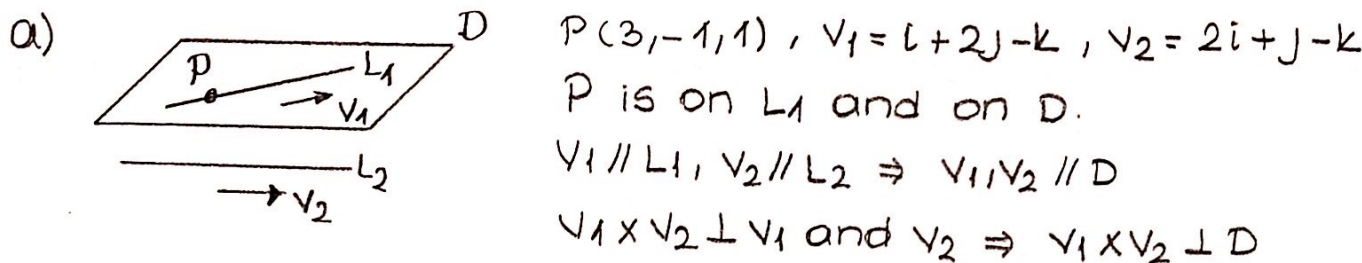 a)
D
P
L1
V1
L2
V2
P(3,-1,1), V1 = i+2j-k, V2 = 2i+j-k
P is on L1 and on D.
V1 // L1, V2 // L2 ⇒ V1, V2 // D
V1 x V2 ⊥ V1 and V2 ⇒ V1 x V2 ⊥ D